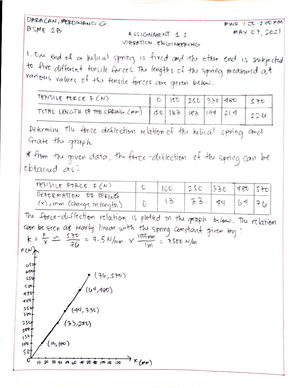 DARACAN, FERDINAND G. MWF 1:00-2:00 PM
BSME 2B MAY 07, 2021
ASSIGNMENT 1.1
VIBRATION ENGINEERING
1. One end of a helical spring is fixed and the other end is subjected
to five different tensile forces. The lengths of the spring measured at
various values of the tensile forces are given below.
TENSILE FORCE F (N) 0 100 250 330 480 570
TOTAL LENGTH OF THE SPRING (mm) 150 163 183 194 214 226
Determine the force deflection relation of the helical spring and
the graph.
* From the given data, the force-deflection of the spring can be
obtained as:
TENSILE FORCE F (N) 0 100 250 330 480 570
DEFORMATION OF SPRING
(x), mm (change in length) 0 13 33 44 64 76
The force-deflection relation is plotted in the graph below. The relation
can be seen as nearly linear with the spring constant given by:
k = F/x = 570/76 = 7.5 N/mm × 1000mm/1m = 7500 N/m
F(N)
(76, 570)
(64, 480)
(44, 330)
(33, 250)
(13, 100)
x (mm)